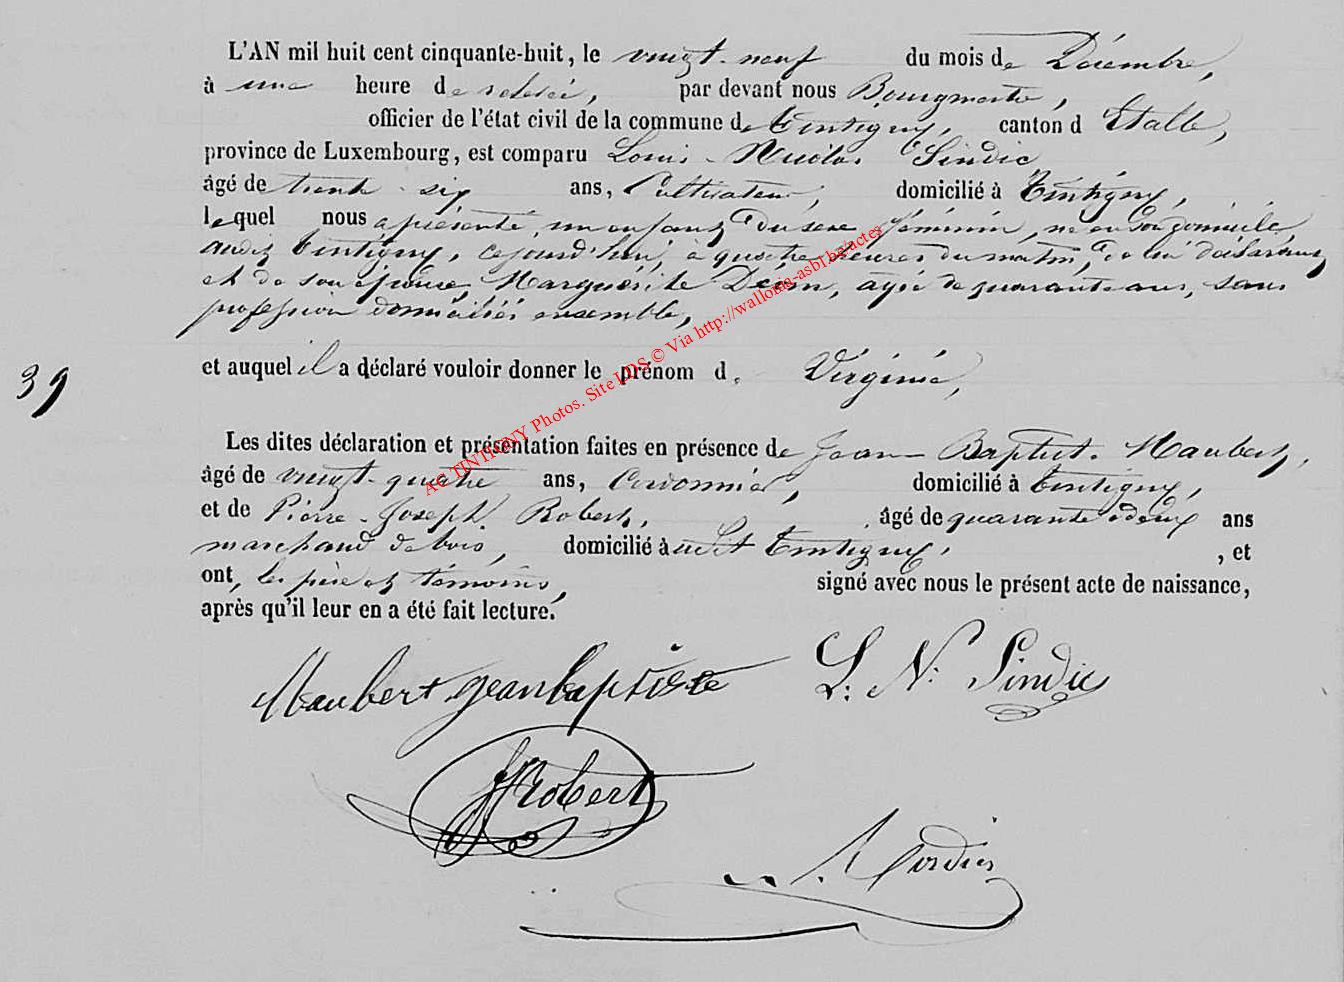 L'AN mil huit cent cinquante-huit, le vingt-neuf du mois de Décembre,
à une heure de relevée, par devant nous Bourgmestre,
officier de l'état civil de la commune de Tintigny, canton d Etalle,
province de Luxembourg, est comparu Louis-Nicolas Sindic
âgé de trente-six ans, Cultivateur, domicilié à Tintigny,
lequel nous a présenté, un enfant du sexe féminin, né en son domicile
audit Tintigny, cejourd'hui, à quatre heures du matin, de lui déclarant
et de son épouse Marguerite Deom, agée de quarante ans, sans
profession domiciliés ensemble,
et auquel il a déclaré vouloir donner le prénom de Virginie,
39
Les dites déclaration et présentation faites en présence de Jean Baptist. Maubert,
âgé de vingt-quatre ans, Cordonnier, domicilié à Tintigny,
et de Pierre-Joseph Robert, âgé de quarante deux ans
marchand de bois, domicilié à udit Tintigny, , et
ont, les père et témoins, signé avec nous le présent acte de naissance,
après qu'il leur en a été fait lecture.
Maubert jean baptiste L. N. Sindic
Robert
AC TINTIGNY Photos. Site LDS © Via http://wallonia-asbl.be/actes